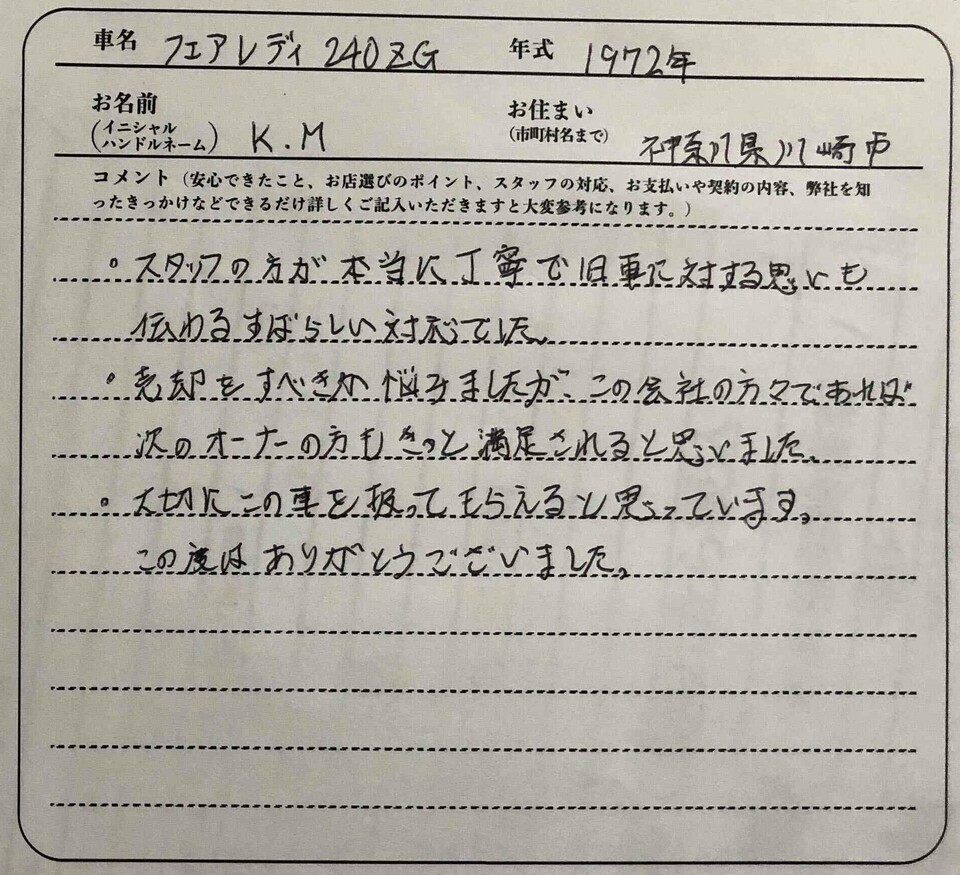 車名 フェアレディ 240ZG 年式 1972年
お名前 お住まい
(イニシャル ハンドルネーム) K.M (市町村名まで) 神奈川県川崎市
コメント（安心できたこと、お店選びのポイント、スタッフの対応、お支払いや契約の内容、弊社を知
ったきっかけなどできるだけ詳しくご記入いただきますと大変参考になります。）
。スタッフの方が本当に丁寧で旧車に対する思いも
伝わるすばらしい対応でした。
。売却をすべきか悩みましたが、この会社の方々であれば
次のオーナーの方もきっと満足されると思いました。
。大切にこの車を扱ってもらえると思っています。
この度はありがとうございました。